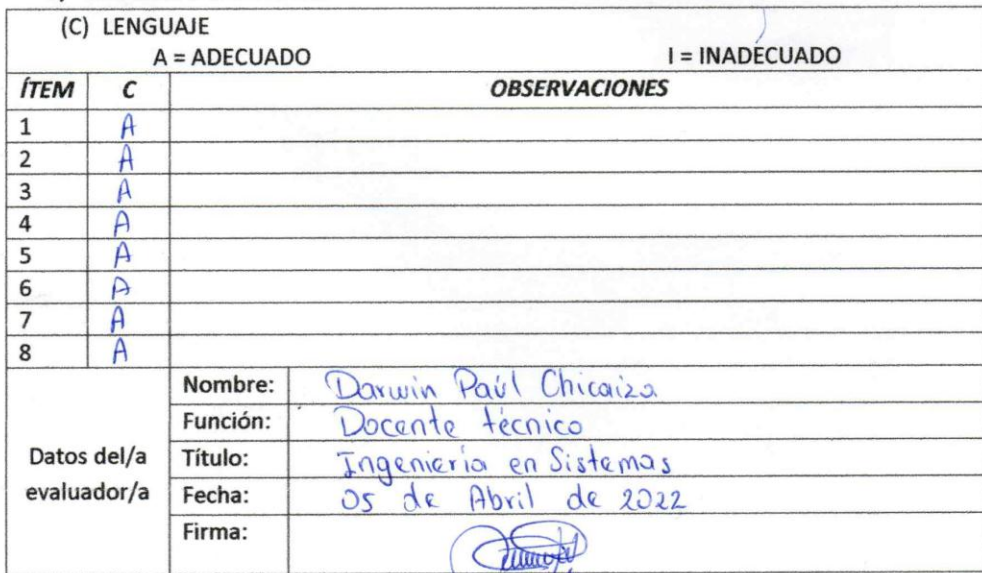 (C) LENGUAJE
A = ADECUADO I = INADECUADO
ÍTEM C OBSERVACIONES
1 A
2 A
3 A
4 A
5 A
6 A
7 A
8 A
Datos del/a evaluador/a
Nombre: Darwin Paúl Chicaiza
Función: Docente técnico
Título: Ingeniería en Sistemas
Fecha: 05 de Abril de 2022
Firma: